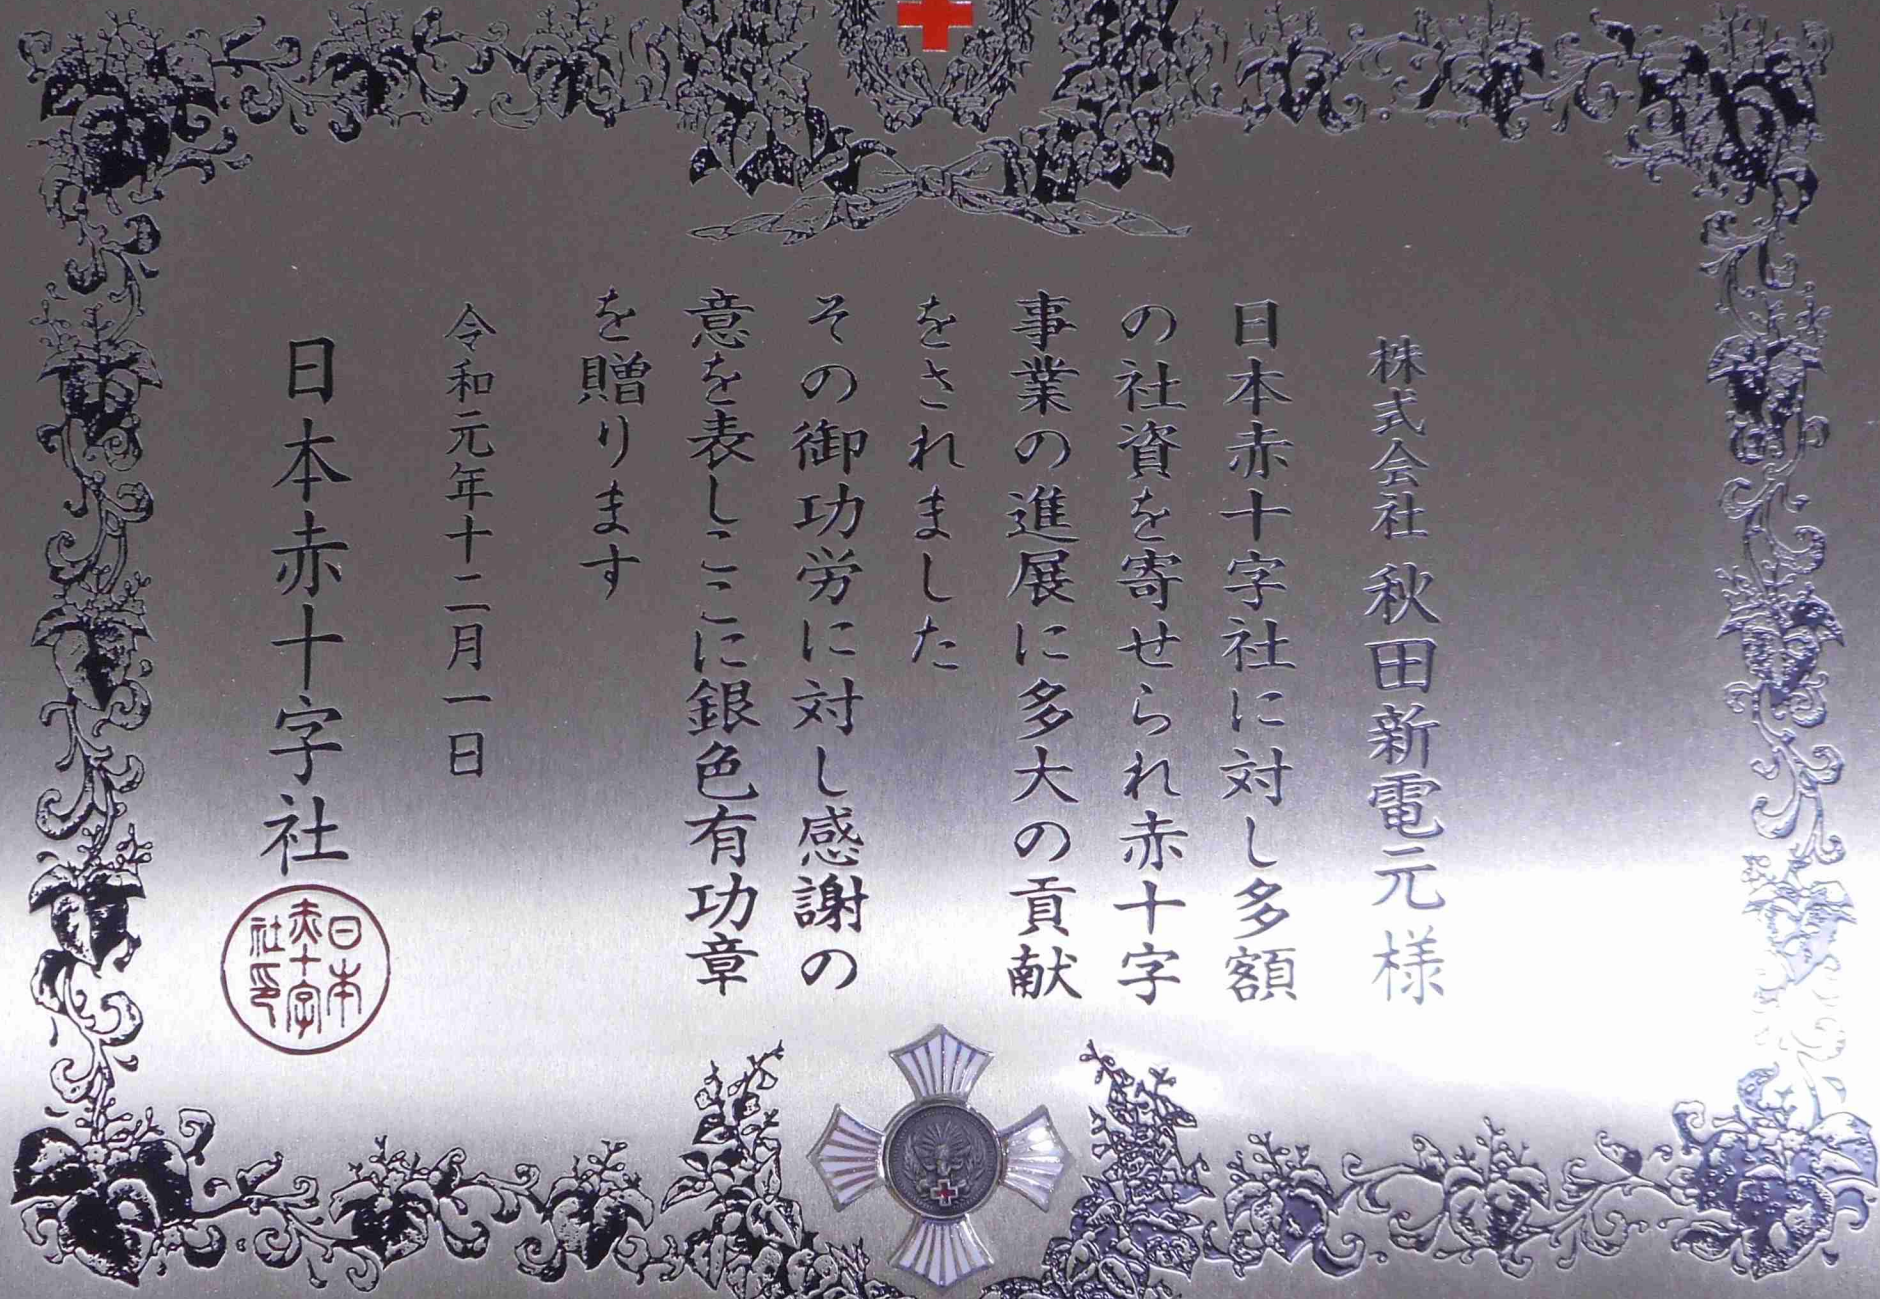 株式会社 秋田新電元 様
日本赤十字社に対し多額
の社資を寄せられ赤十字
事業の進展に多大の貢献
をされました
その御功労に対し感謝の
意を表しここに銀色有功章
を贈ります
令和元年十二月一日
日本赤十字社
日本
赤十字
社印